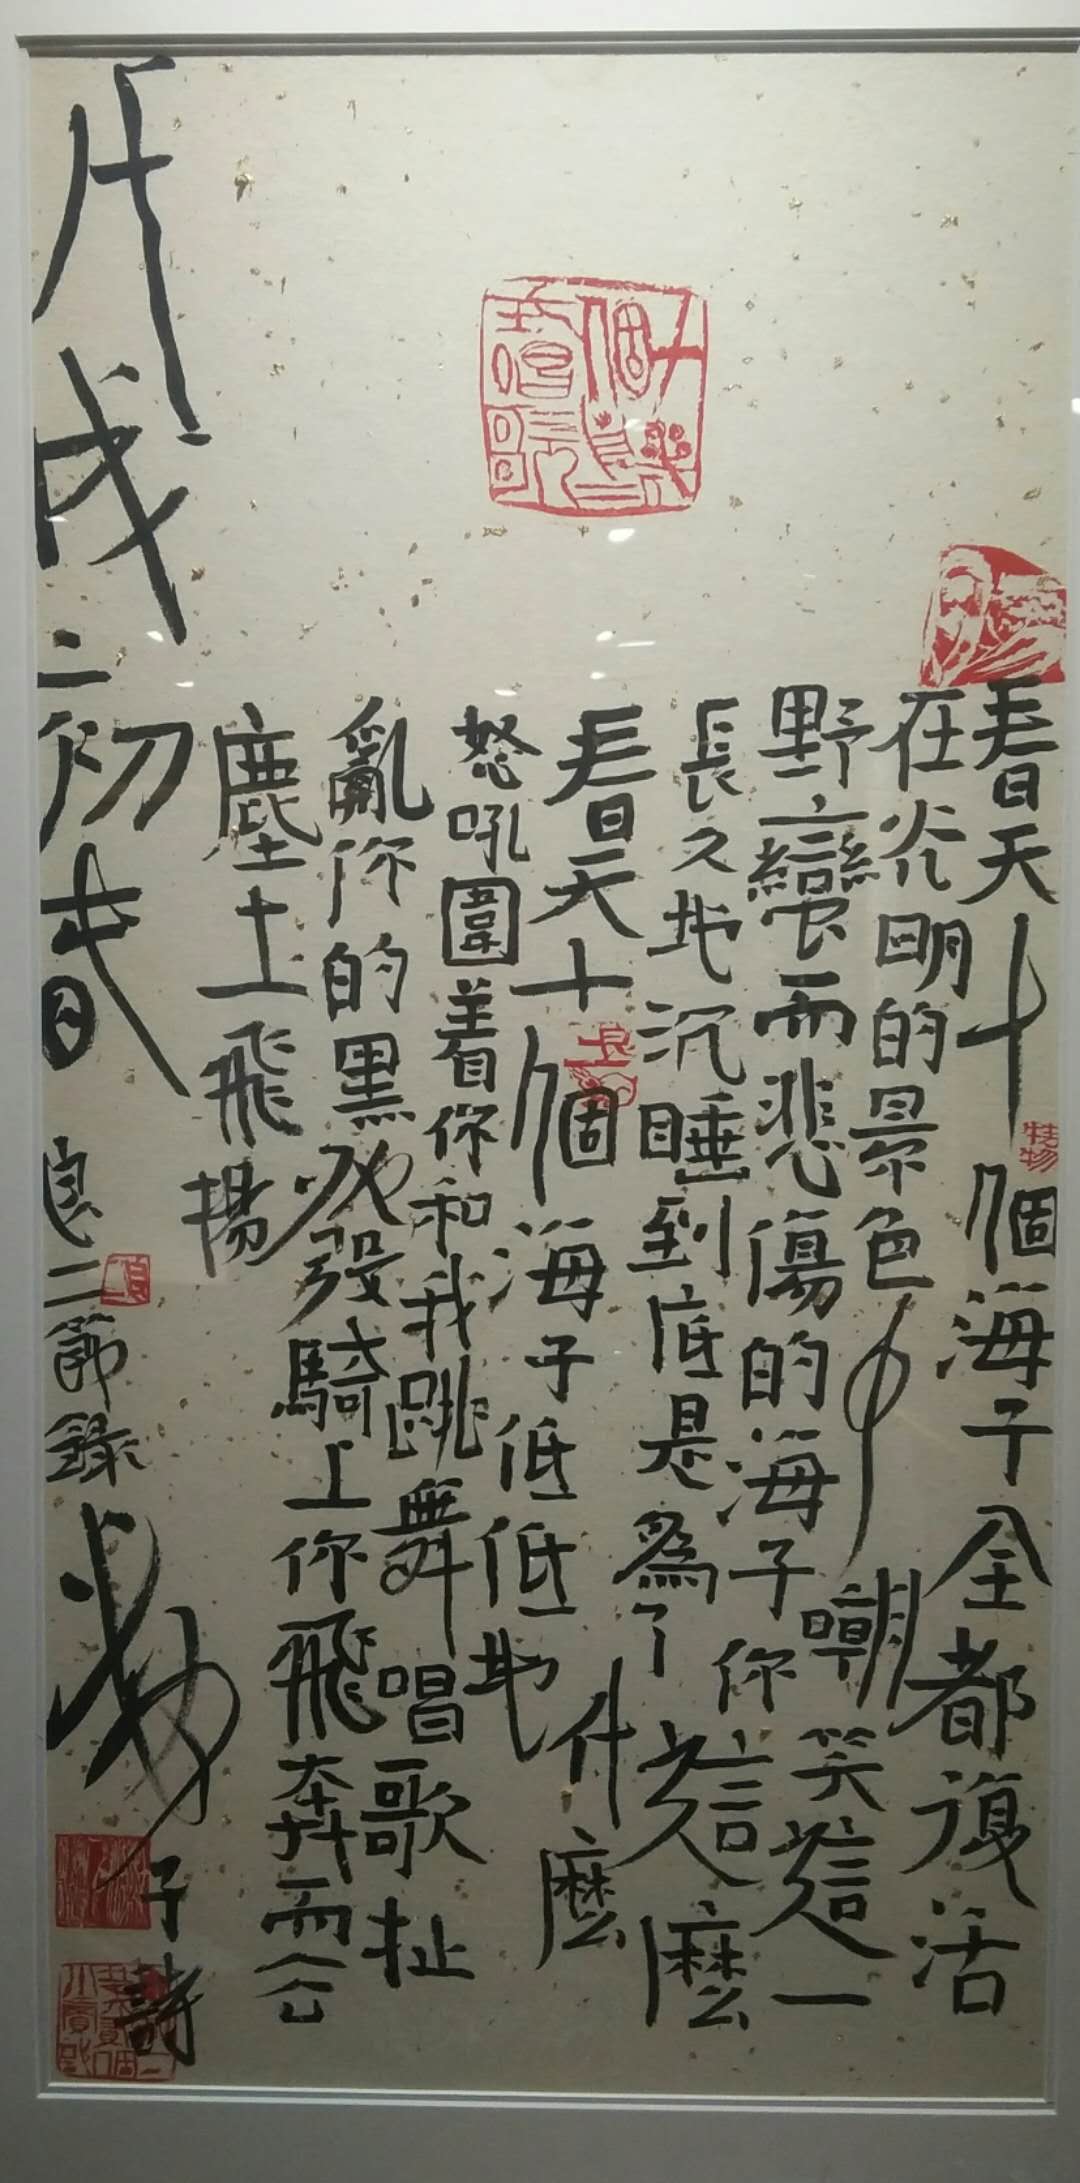 春天十個海子全都復活
在光明的景色中嘲笑這一
野蠻而悲傷的海子你這麼
長久地沉睡到底是為了什麼
春天十個海子低低地
怒吼圍着你和我跳舞唱歌扯
亂你的黑頭發騎上你飛奔而去
塵土飛揚
戊戌二初春日良二節錄海子詩